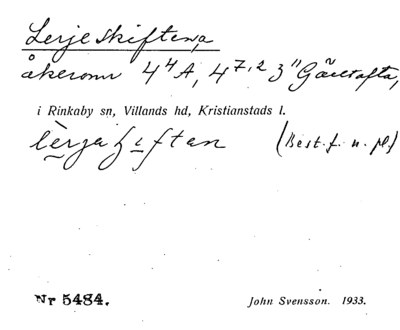 Lerjeskiftena,
åkeromr 4⁴A, 4⁷,² 3" Gärestofta,
i Rinkaby sn, Villands hd, Kristianstads l.
(Best. f. n. pl.)
Nr 5484. John Svensson. 1933.